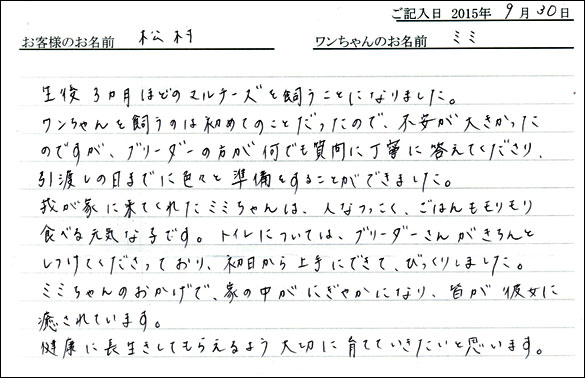 ご記入日 2015年 9月30日
お客様のお名前 松村 ワンちゃんのお名前 ミミ
生後3ヵ月ほどのマルチーズを飼うことになりました。
ワンちゃんを飼うのは初めてのことだったので、不安が大きかった
のですが、ブリーダーの方が何でも質問に丁寧に答えてくださり、
引渡しの日までに色々と準備をすることができました。
我が家に来てくれたミミちゃんは、人なつっこく、ごはんもモリモリ
食べる元気な子です。トイレについては、ブリーダーさんがきちんと
しつけてくださっており、初日から上手にできて、びっくりしました。
ミミちゃんのおかげで、家の中がにぎやかになり、皆が彼女に
癒されています。
健康に長生きしてもらえるよう大切に育てていきたいと思います。